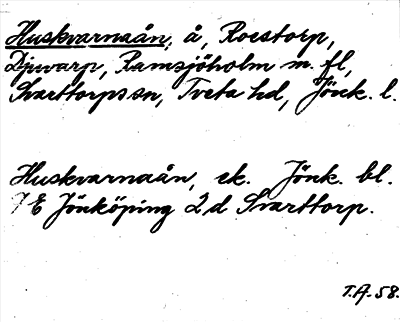 Huskvarnaån, å, Roestorp,
Djuvarp, Ramsjöholm m. fl,
Svarttorps sn, Tveta hd, Jönk. l.
Huskvarnaån, ek. Jönk. bl.
7 E Jönköping 2 d Svarttorp.
T.A. 58.